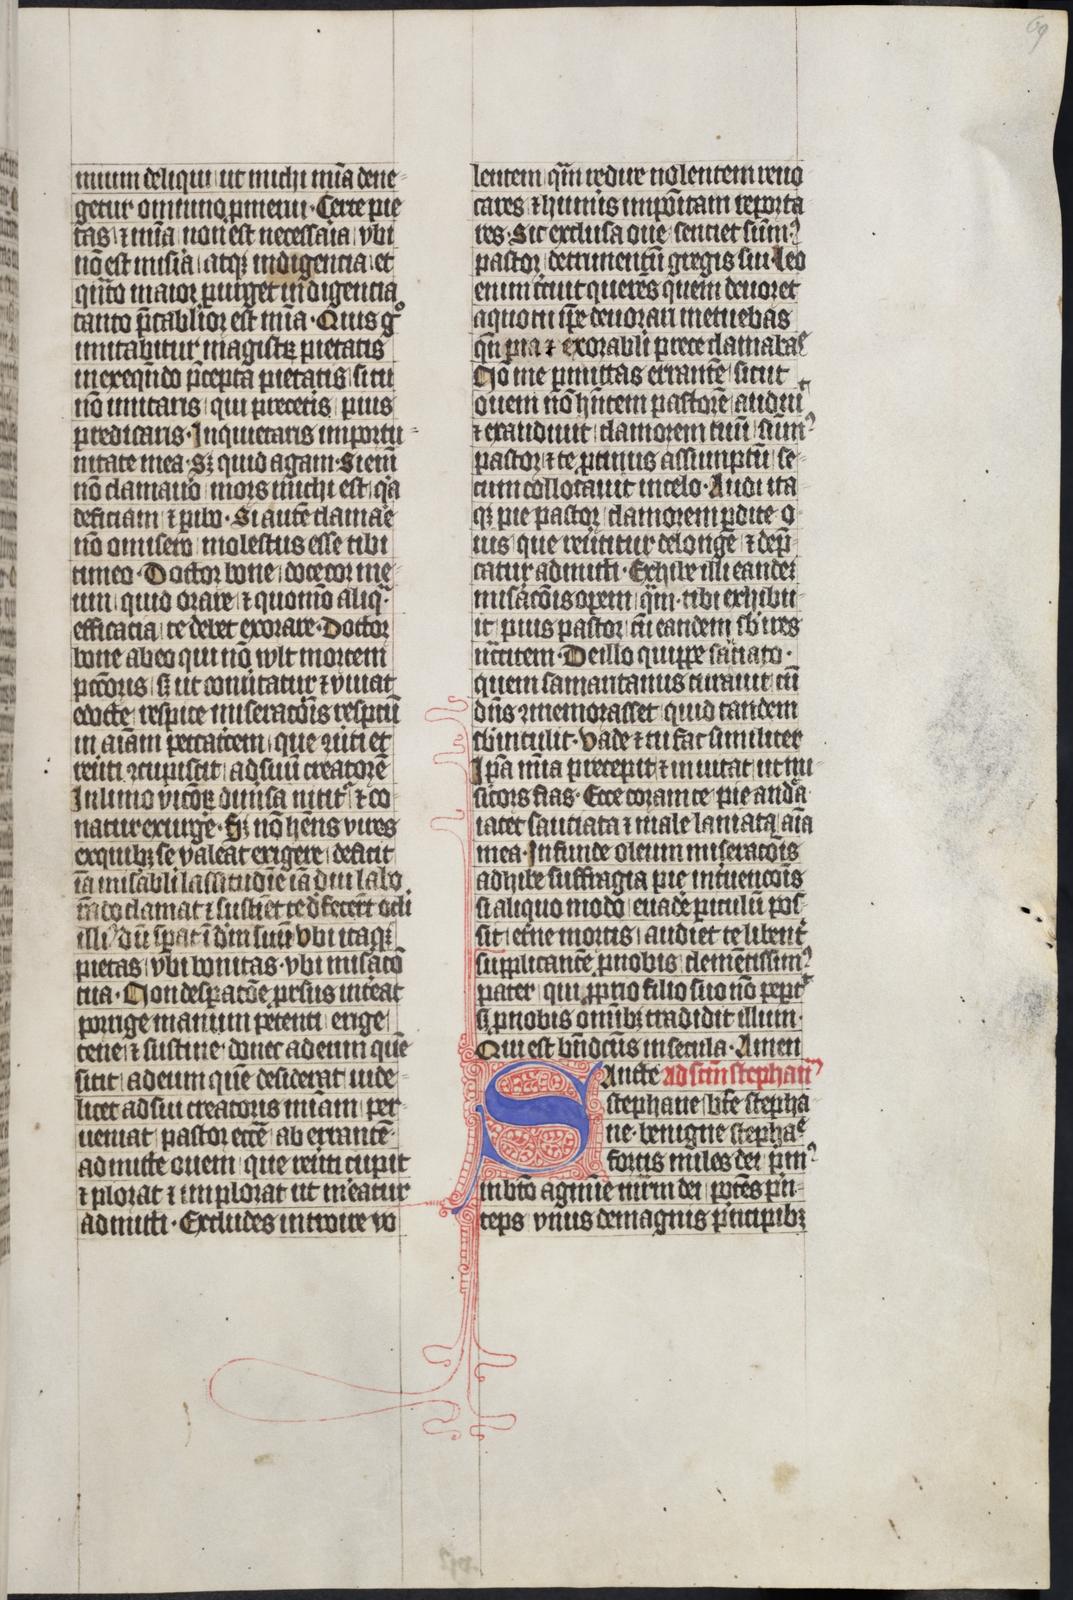 69
nimium deliqui ut michi mīa dene-
getur omnino ꝓmerui· Certe pie
tas ⁊ mīa non est necessaria vbi
nō est misīa atqꝫ indigencia et
qnͣto maior ꝑurget indigencia
tanto p̄stablior est mīa· Quis gͦ
imitabitur magistꝝ pietatis
in exeqn̄do p̄cepta pietatis si tu
nō imitaris qui precetis pius
predicaris· Inquietaris importu-
nitate mea· Sꝫ quid agam· Si em̄
nō clamauo mors michi est qͣa
deficiam ⁊ ꝑibo· Si autē clamāe
nō omisero molestus esse tibi
timeo· Doctor bone doce cor me
um quid orare ⁊ quomō aliqͣ
efficacia te debet exorare· Doctor
bone ab eo qui nō wlt mortem
pccōris sꝫ ut conūtatur ⁊ viuat
edocte respice miseracōis respctū
in aīam peccatcem que nititꝰ et
reūti ꝯcupiscit ad suū creatorē
In limo vicōꝝ dimsa nitit᷑ ⁊ co
natur exurge· Sꝫ nō hn̄s vires
ex quibꝫ se valeat erigere deficit
iā misabli lassitudīe iā diu labo
rādo clamat ⁊ sustinet te defecert ocli
illiꝰ dū sperat ī dīm suū Vbi itaqꝫ
pietas vbi bonitas· vbi misacō
tua· Non despacōe prsus inteat
porrige manum petenti erige
tene ⁊ sustine· donec ad eum quē
sitit ad eum quē desiderat uide
licet ad sui creatoris mīam per
ueniat pastor ecce aberrantē·
admitte ouem que reūti cupit
⁊ plorat ⁊ implorat ut meatur
admitti· Excludes introire vo
lentem qm̄ redire nolentem reuo
cares ⁊ humīs imponitam reporta
res· Sic exclusa oue sentiet sūmꝰ
pastor detrimentū gregis sui· Leo
enim circuit querēs quem deuoret
a quo tu ip̄e deuorari metuebas
qn̄ pia ⁊ exorabli prece clamabas
No me ꝑmittas errantē sicut
ouem nō hn̄tem pastorē audiuit
⁊ exaudiuit clamorem tuū sūmꝰ
pastor ⁊ te ꝓtinus assumptū se-
cum collocauit in celo· Audi ita
qꝫ pie pastor clamorem ꝑdite o-
uis que reūtitur de longe ⁊ dep̄
catur admitti· Exhibe illi eandē
misacōis opem qm̄ tibi exhibu-
it pius pastor cū eandem sb̄ires
nc̄citem· De illo quippe sāciato·
quem samaritanus curauit cū
dn̄s ꝯmemorasset quid tandem
sb̄intulit· Vade ⁊ tu fac similiter
Ipa mīa precepit ⁊ inuitat ut mi
sicors fias· Ecce coram te pie andͣa
iacet sauciata ⁊ male laniata aīa
mea· Infunde oleum miseracōis
adhibe suffragia pie int̄uencōis
si aliquo modo euadē ꝑiculū pos-
sit et̄ne mortis audiet te libent᷑
supplicantē ꝓ nobis clemētissimꝰ
pater qui ꝓprio filio suo nō peꝑcit
sꝫ ꝓ nobis omībꝫ tradidit illum·
Qui est bn̄dcūs in secula· Amen
Sancte ad scm̄ stephanū
stephane bt̄e stepha
ne· benigne stephane
fortis miles dei p̄mꝰ
in bt̄o agmīe mr̄m dei potēs prin-
ceps vnus de magnis principibꝫ